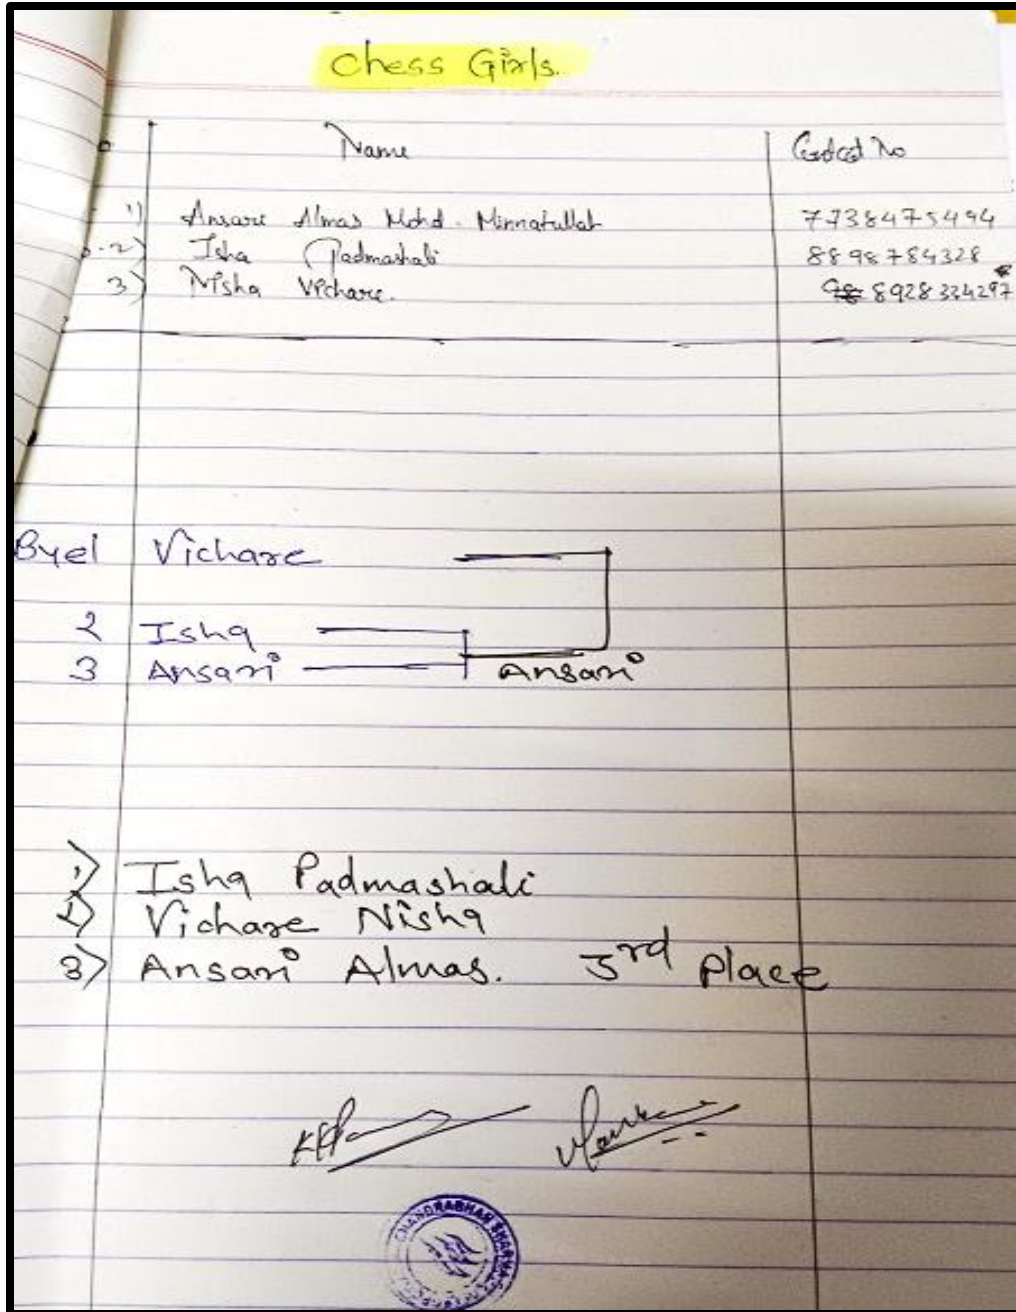 Chess Girls.
Name Contact No
1) Ansari Almas Mohd. Minnatullah 7738475494
2) Isha Padmashali 8898784328
3) Nisha Vichare. 8928334297
Bye1 Vichare
2 Isha
3 Ansari Ansari
1) Isha Padmashali
2) Vichare Nisha
3) Ansari Almas. 3rd place
CHANDRABHAN SHARMA